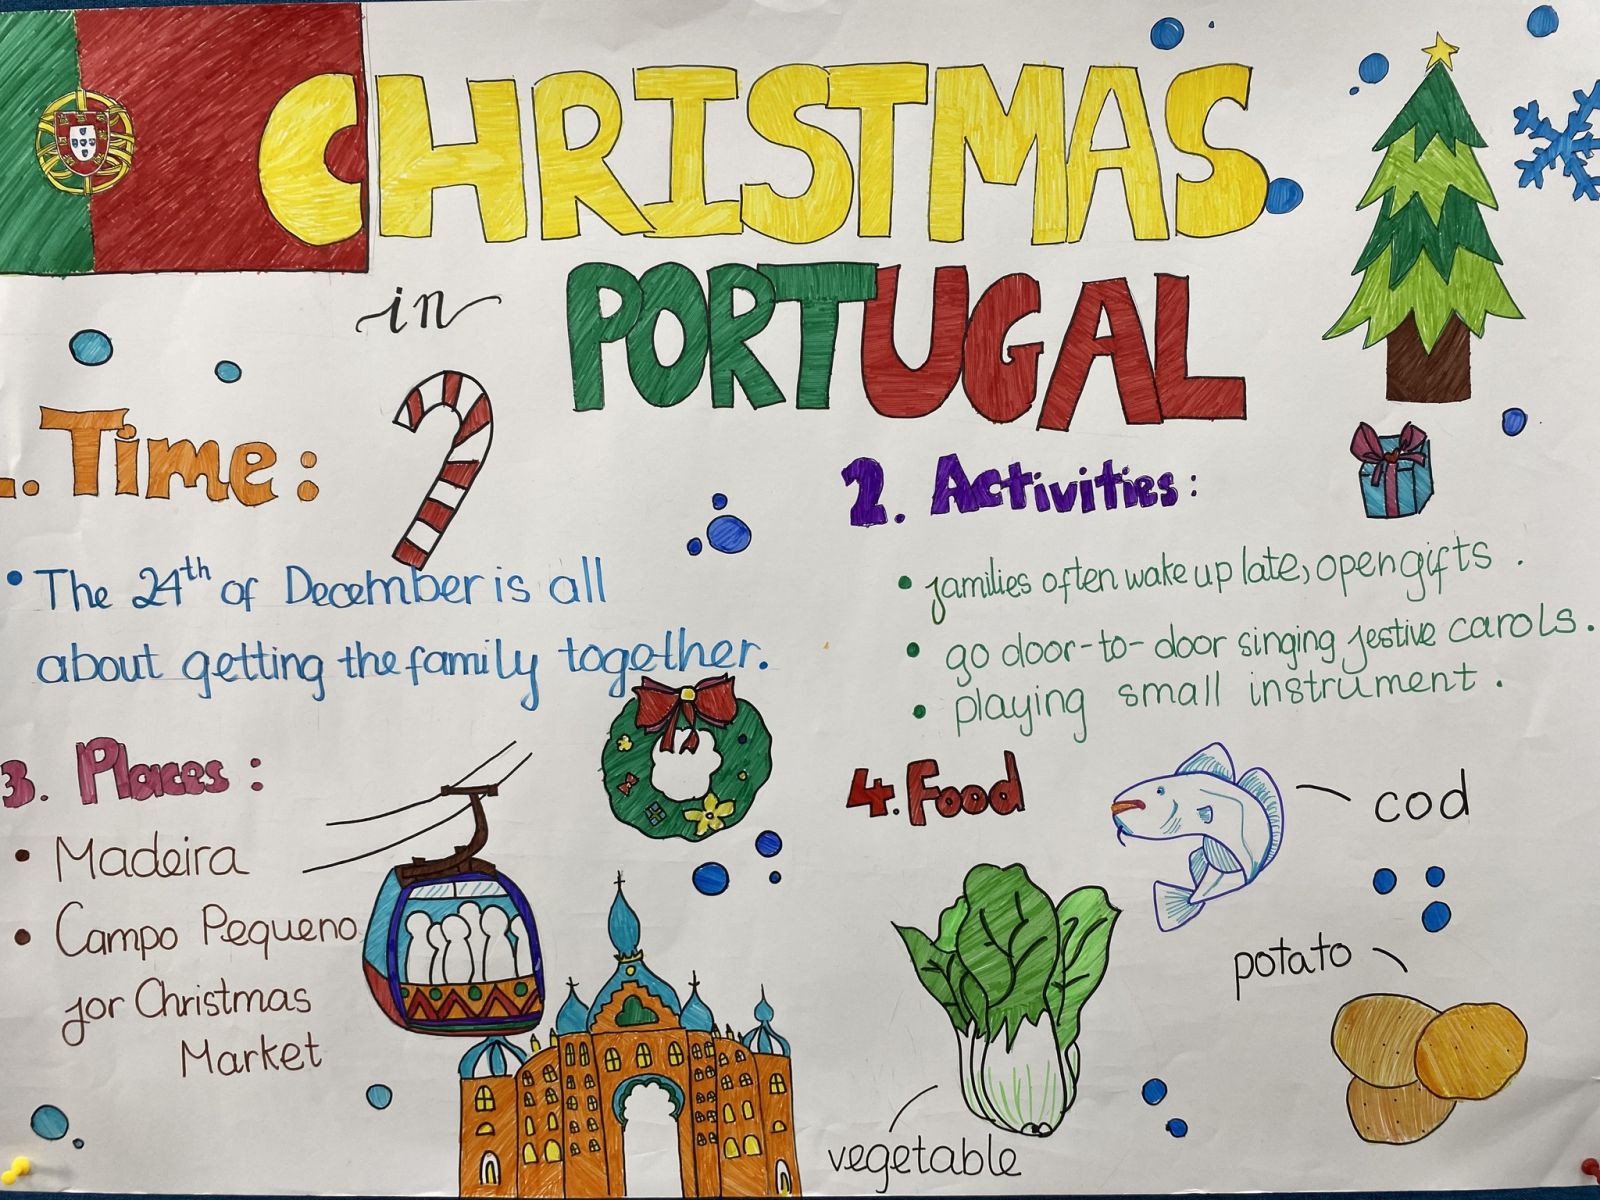 CHRISTMAS
in
PORTUGAL
1. Time:
• The 24th of December is all
about getting the family together.
2. Activities:
• families often wake up late, open gifts.
• go door-to-door singing festive carols.
• playing small instrument.
3. Places:
• Madeira
• Campo Pequeno
for Christmas
Market
4. Food
cod
potato
vegetable